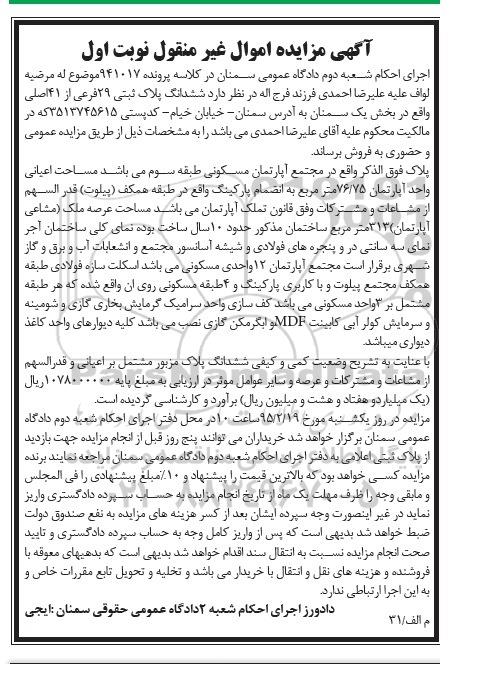 آگهی مزایده اموال غیر منقول نوبت اول
اجرای احکام شـعبه دوم دادگاه عمومی سـمنان در کلاسه پرونده ۹۴۱۰۱۷موضوع له مرضیه
لواف علیه علیرضا احمدی فرزند فرج اله در نظر دارد ششدانگ پلاک ثبتی ۲۹فرعی از ۴۱اصلی
واقع در بخش یک سـمنان به آدرس سمنان- خیابان خیام- کدپستی ۳۵۱۳۷۴۵۶۱۵که در
مالکیت محکوم علیه آقای علیرضا احمدی می باشد را به مشخصات ذیل از طریق مزایده عمومی
و حضوری به فروش برساند.
پلاک فوق الذکر واقع در مجتمع آپارتمان مسـکونی طبقه سـوم می باشد مسـاحت اعیانی
واحد آپارتمان ۷۶/۷۵متر مربع به انضمام پارکینگ واقع در طبقه همکف (پیلوت) قدر السـهم
از مشـاعات و مشـترکات وفق قانون تملک آپارتمان می باشـد مساحت عرصه ملک (مشاعی
آپارتمان)۳۱۳متر مربع ساختمان مذکور حدود ۱۰سال ساخت بوده نمای کلی ساختمان آجر
نمای سه سانتی در و پنجره های فولادی و شیشه آسانسور مجتمع و انشعابات آب و برق و گاز
شـهری برقرار است مجتمع آپارتمان ۱۲واحدی مسکونی می باشد اسکلت سازه فولادی طبقه
همکف مجتمع پیلوت و با کاربری پارکینگ و ۴طبقه مسکونی روی ان واقع شده که هر طبقه
مشتمل بر ۳واحد مسکونی می باشد کف سازی واحد سرامیک گرمایش بخاری گازی و شومینه
و سرمایش کولر آبی کابینت MDFو ابگرمکن گازی نصب می باشد کلیه دیوارهای واحد کاغذ
دیواری میباشد.
با عنایت به تشریح وضعیت کمی و کیفی ششدانگ پلاک مزبور مشتمل بر اعیانی و قدرالسهم
از مشاعات و مشترکات و عرصه و سایر عوامل موثر در ارزیابی به مبلغ پایه ۱۰۷۸۰۰۰۰۰۰ریال
(یک میلیاردو هفتاد و هشت و میلیون ریال) برآورد و کارشناسی گردیده است.
مزایده در روز یکشـنبه مورخ ۹۵/۲/۱۹ساعت ۱۰در محل دفتر اجرای احکام شعبه دوم دادگاه
عمومی سمنان برگزار خواهد شد خریداران می توانند پنج روز قبل از انجام مزایده جهت بازدید
از پلاک ثبتی اعلامی به دفتر اجرای احکام شعبه دوم دادگاه عمومی سمنان مراجعه نمایند برنده
مزایده کسـی خواهد بود که بالاترین قیمت را پیشنهاد و ۱۰٪مبلغ پیشنهادی را فی المجلس
و مابقی وجه را ظرف مهلت یک ماه از تاریخ انجام مزایده به حساب سـپرده دادگستری واریز
نماید در غیر اینصورت وجه سپرده ایشان بعد از کسر هزینه های مزایده به نفع صندوق دولت
ضبط خواهد شد بدیهی است که پس از واریز کامل وجه به حساب سپرده دادگستری و تایید
صحت انجام مزایده نسـبت به انتقال سند اقدام خواهد شد بدیهی است که بدهیهای معوقه با
فروشنده و هزینه های نقل و انتقال با خریدار می باشد و تخلیه و تحویل تابع مقررات خاص و
به این اجرا ارتباطی ندارد.
دادورز اجرای احکام شعبه ۲دادگاه عمومی حقوقی سمنان :ایجی
م الف/۳۱